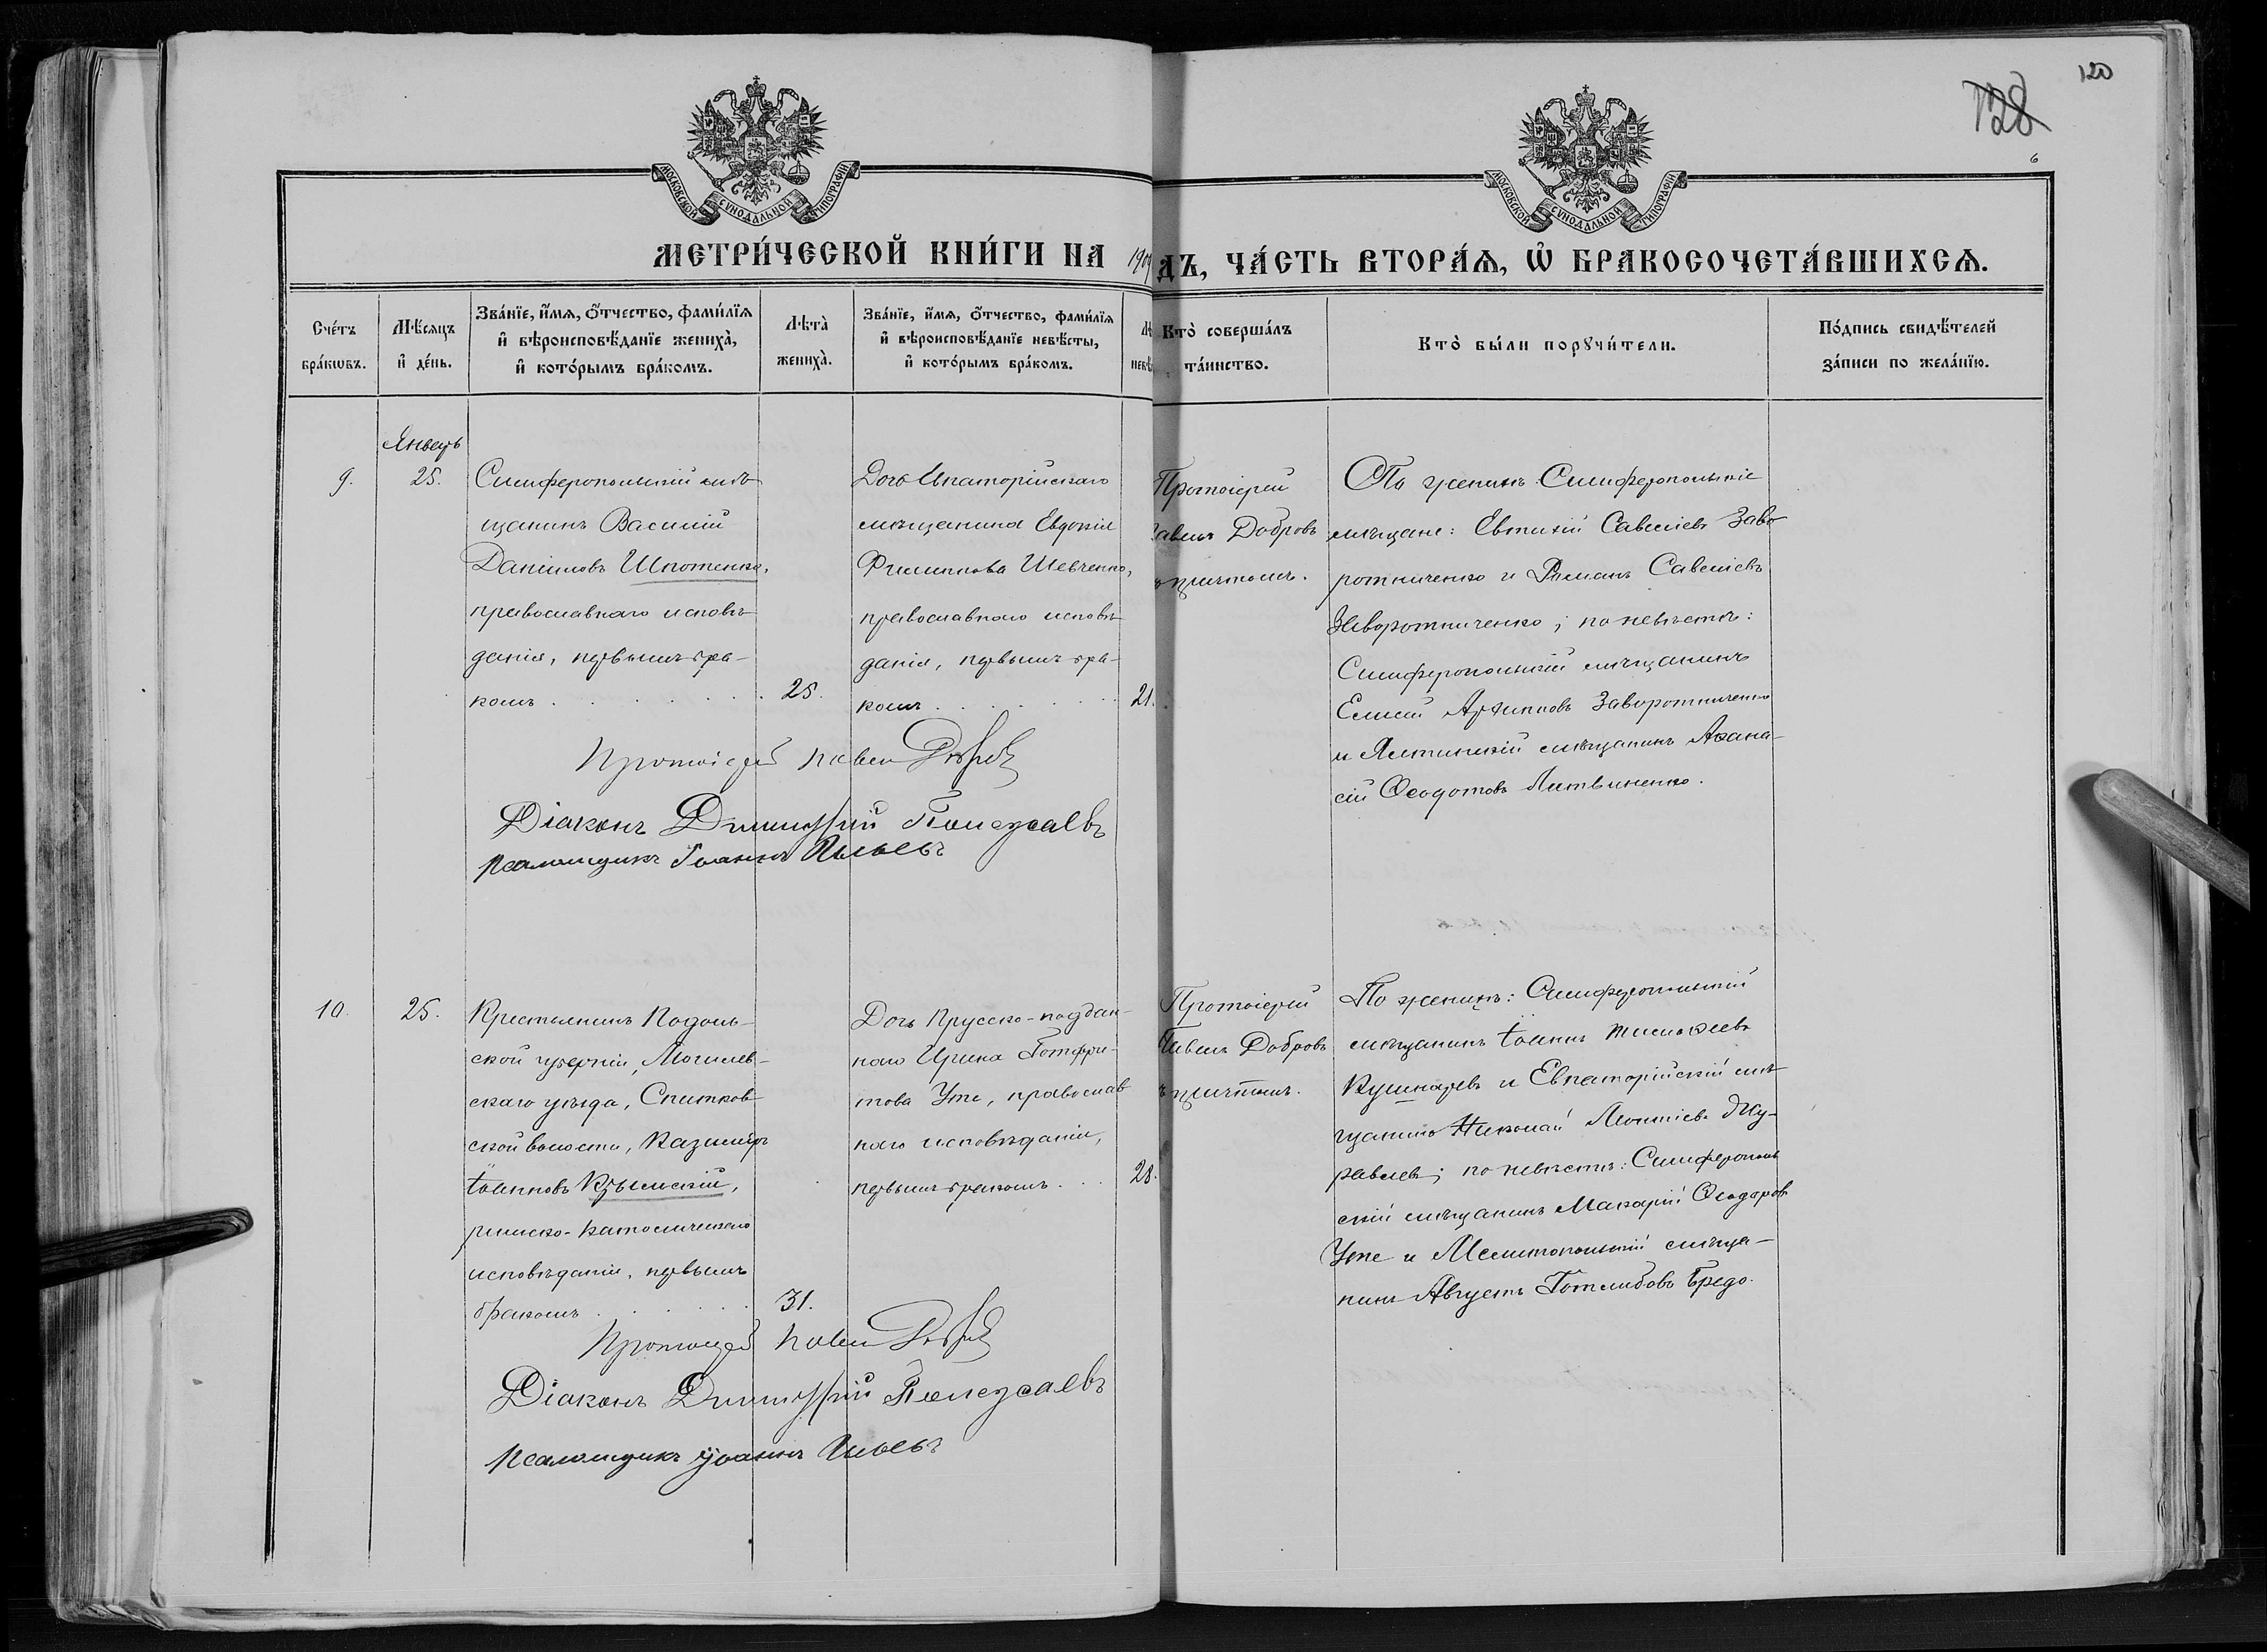 120
128
6
МОСКОВСКОЙ СѴНОДАЛЬНОЙ ТИПОГРАФІИ
МОСКОВСКОЙ СѴНОДАЛЬНОЙ ТИПОГРАФІИ
МЕТРИ́ЧЕСКОЙ КНИ́ГИ НА 1909
ДЪ, ЧА́СТЬ ВТОРА́Я, Ѽ БРАКОСОЧЕТА́ВШИХСЯ.
Сче́тъ
бра́кѡвъ.
Мѣ́сяцъ
и҆ де́нь.
Зва́нїе, и҆́мя, ѻ҆́тчество, фами́лїя
и҆ вѣроисповѣ́данїе жениха̀,
и҆ кото́рымъ бра́комъ.
Лѣта̀
жениха̀.
Зва́нїе, и҆́мя, ѻ҆́тчество, фами́лїя
и҆ вѣроисповѣ́данїе невѣ́сты,
и҆ кото́рымъ бра́комъ.
Лѣ
невѣ
Кто̀ соверша́лъ
та́инство.
Кто̀ бы́ли порꙋчи́тели.
По́дпись свидѣ́телей
за́писи по жела́нїю.
Январь
9.
25.
Симферопольскій мѣ-
щанинъ Василій
Даніиловъ Шпотенко,
православнаго исповѣ-
данія, первымъ бра-
комъ
25.
Дочь Евпаторійскаго
мѣщанина Евдокія
Филиппова Шевченко,
православнаго исповѣ-
данія, первымъ бра-
комъ
21.
Протоіерей
Павелъ Добровъ
съ причтомъ.
По женихѣ Симферопольскіе
мѣщане: Евтихій Савеліевъ Заво-
ротниченко и Романъ Савеліевъ
Заворотниченко; по невѣстѣ:
Симферопольскій мѣщанинъ
Елисей Архипповъ Заворотниченко
и Ялтинскій мѣщанинъ Аѳана-
сій Ѳеодотовъ Литвиненко.
Протоіерей Павелъ Добровъ
Діаконъ Димитрій
Псаломщикъ Іоаннъ Ильевъ
10.
25.
Крестьянинъ Подоль-
ской губерніи, Могилев-
скаго уѣзда, Снитков-
ской волости, Казиміръ
Іоанновъ Крымскій,
римско-католическаго
исповѣданія, первымъ
бракомъ
31.
Дочь Прусско-поддан-
наго Ирина Готфри-
това Утке, православ-
наго исповѣданія,
первымъ бракомъ
28.
Протоіерей
Павелъ Добровъ
съ причтомъ.
По женихѣ: Симферопольскій
мѣщанинъ Іоаннъ Тимоѳеевъ
Кушнаревъ и Евпаторійскій мѣ-
щанинъ Николай Леонтіевъ Жу-
равлевъ; по невѣстѣ: Симферополь-
скій мѣщанинъ Макарій Ѳеодоровъ
Утке и Мелитопольскій мѣща-
нинъ Августъ Готлибовъ Бредо.
Протоіерей Павелъ Добровъ
Діаконъ Димитрій
Псаломщикъ Іоаннъ Ильевъ